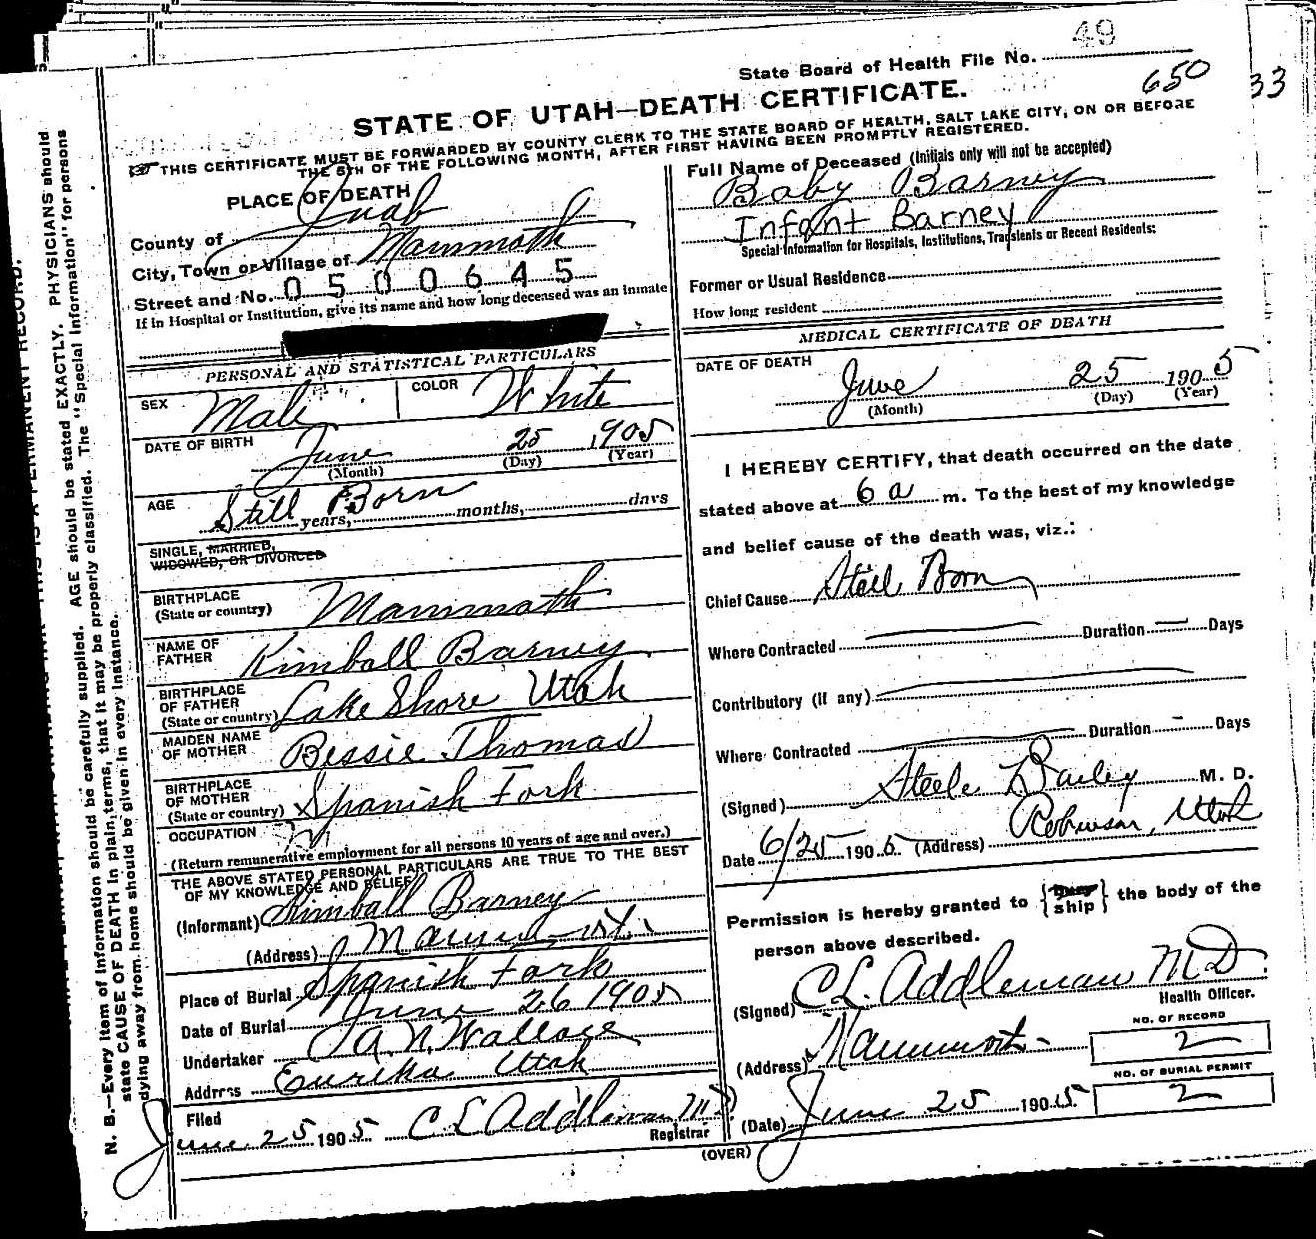 49
State Board of Health File No.
650
33
STATE OF UTAH—DEATH CERTIFICATE.
THIS CERTIFICATE MUST BE FORWARDED BY COUNTY CLERK TO THE STATE BOARD OF HEALTH, SALT LAKE CITY, ON OR BEFORE
THE 5TH OF THE FOLLOWING MONTH, AFTER FIRST HAVING BEEN PROMPTLY REGISTERED.
PLACE OF DEATH
County of Juab
City, Town or Village of Mammoth
Street and No. 0500645
If in Hospital or Institution, give its name and how long deceased was an inmate
PERSONAL AND STATISTICAL PARTICULARS
SEX Male COLOR White
DATE OF BIRTH June 25 1905
(Month) (Day) (Year)
AGE Still Born
years, months, days
SINGLE, MARRIED,
WIDOWED, OR DIVORCED
BIRTHPLACE
(State or country) Mammoth
NAME OF
FATHER Kimball Barney
BIRTHPLACE
OF FATHER
(State or country) Lake Shore Utah
MAIDEN NAME
OF MOTHER Bessie Thomas
BIRTHPLACE
OF MOTHER
(State or country) Spanish Fork
OCCUPATION
(Return remunerative employment for all persons 10 years of age and over.)
THE ABOVE STATED PERSONAL PARTICULARS ARE TRUE TO THE BEST
OF MY KNOWLEDGE AND BELIEF
(Informant) Kimball Barney
(Address) Mammoth
Place of Burial Spanish Fork
Date of Burial June 26 1905
Undertaker A. N. Wallace
Address Eureka Utah
Filed
June 25 1905 C L Addleman M D
Registrar
Full Name of Deceased (Initials only will not be accepted)
Baby Barney
Infant Barney
Special Information for Hospitals, Institutions, Transients or Recent Residents:
Former or Usual Residence
How long resident
MEDICAL CERTIFICATE OF DEATH
DATE OF DEATH
June 25 1905
(Month) (Day) (Year)
I HEREBY CERTIFY, that death occurred on the date
stated above at 6 a m. To the best of my knowledge
and belief cause of the death was, viz.:
Chief Cause Still Born
Where Contracted Duration Days
Contributory (if any)
Where Contracted Duration Days
(Signed) Steele Bailey M. D.
Date 6/25 1905 (Address) Robinson, Utah
Permission is hereby granted to {bury ship} the body of the
person above described.
(Signed) C L. Addleman M D.
Health Officer.
(Address) Mammoth
NO. OF RECORD
2
NO. OF BURIAL PERMIT
2
(Date) June 25 1905
(OVER)
N. B.—Every item of information should be carefully supplied. AGE should be stated EXACTLY. PHYSICIANS should
state CAUSE OF DEATH in plain terms, that it may be properly classified. The "Special Information" for persons
dying away from home should be given in every instance.